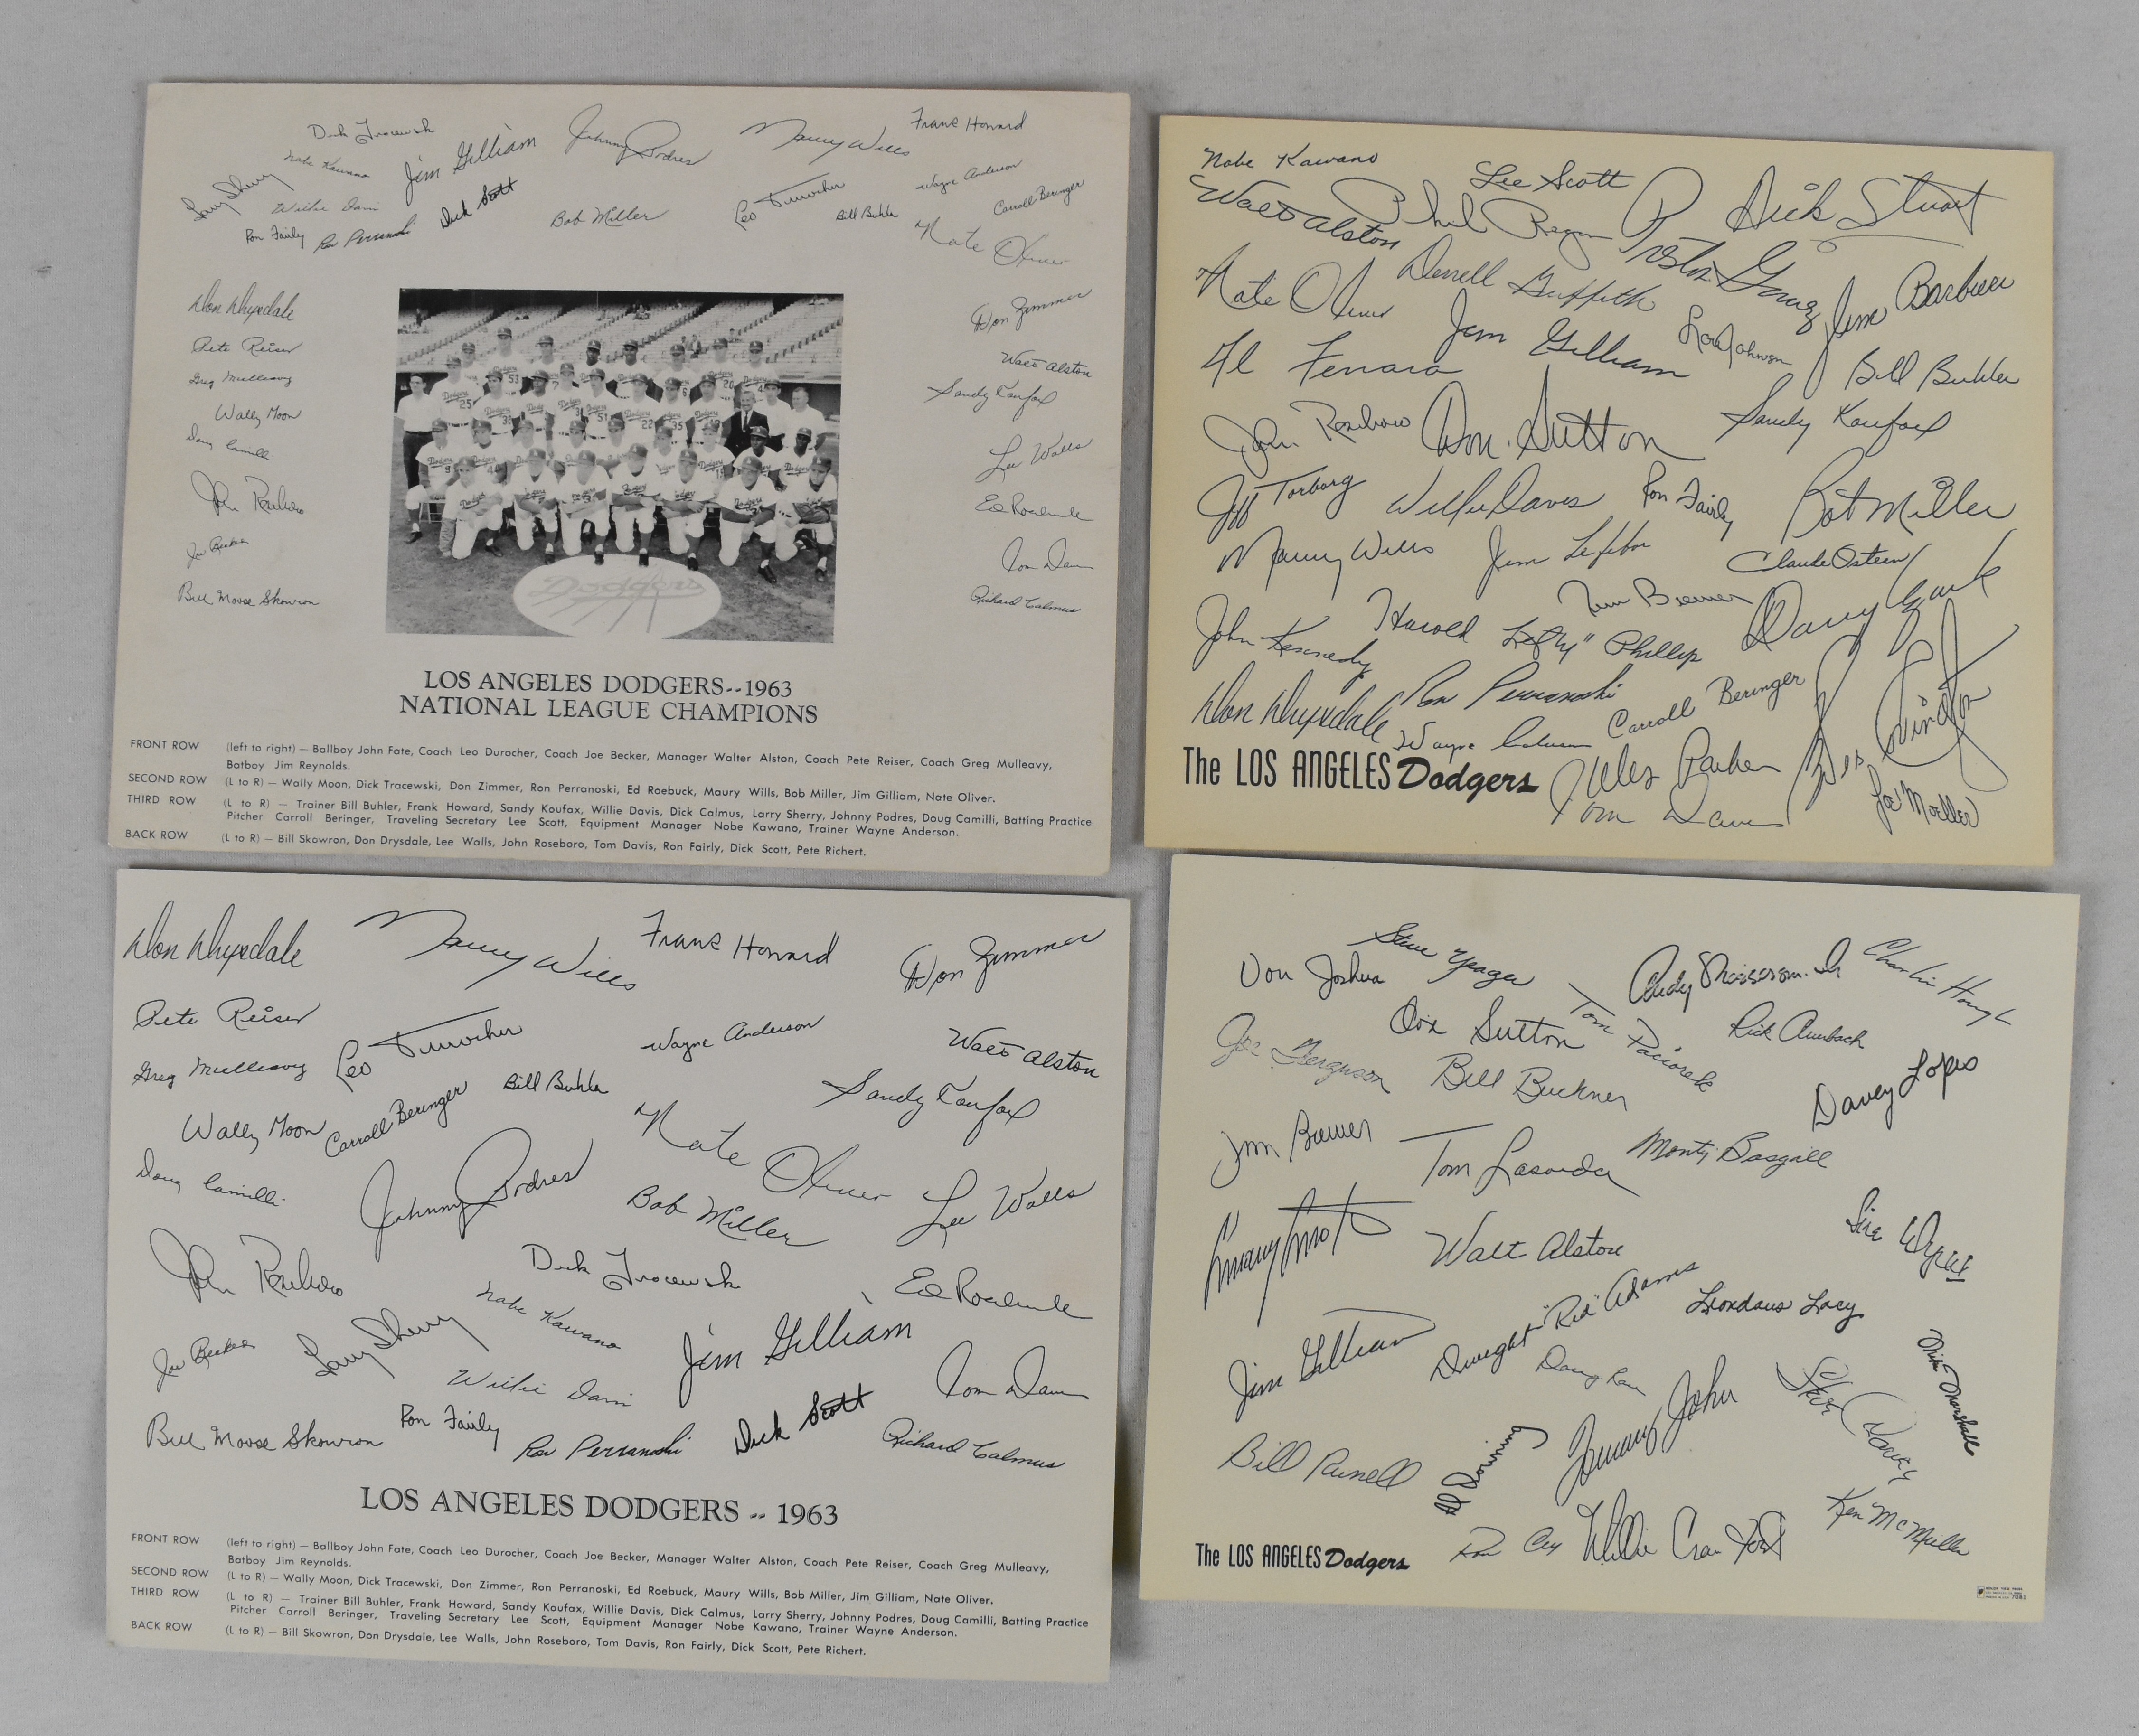 Dick Tracewski
Nobe Kawano
Jim Gilliam
Johnny Podres
Maury Wills
Frank Howard
Larry Sherry
Willie Davis
Dick Scott
Leo Durocher
Wayne Anderson
Ron Fairly
Ron Perranoski
Bob Miller
Bill Buhler
Carroll Beringer
Nate Oliver
Don Drysdale
Pete Reiser
Greg Mulleavy
Wally Moon
Doug Camilli
John Roseboro
Joe Becker
Bill Moose Skowron
Don Zimmer
Walt Alston
Sandy Koufax
Lee Walls
Ed Roebuck
Tom Davis
Richard Calmus
Dodgers
LOS ANGELES DODGERS--1963
NATIONAL LEAGUE CHAMPIONS
FRONT ROW (left to right) — Ballboy John Fate, Coach Leo Durocher, Coach Joe Becker, Manager Walter Alston, Coach Pete Reiser, Coach Greg Mulleavy,
Batboy Jim Reynolds.
SECOND ROW (L to R) — Wally Moon, Dick Tracewski, Don Zimmer, Ron Perranoski, Ed Roebuck, Maury Wills, Bob Miller, Jim Gilliam, Nate Oliver.
THIRD ROW (L to R) — Trainer Bill Buhler, Frank Howard, Sandy Koufax, Willie Davis, Dick Calmus, Larry Sherry, Johnny Podres, Doug Camilli, Batting Practice
Pitcher Carroll Beringer, Traveling Secretary Lee Scott, Equipment Manager Nobe Kawano, Trainer Wayne Anderson.
BACK ROW (L to R) — Bill Skowron, Don Drysdale, Lee Walls, John Roseboro, Tom Davis, Ron Fairly, Dick Scott, Pete Richert.
Nobe Kawano
Lee Scott
Walt Alston
Phil Regan
Preston Gomez
Dick Stuart
Nate Oliver
Derrell Griffith
Jim Barbieri
Al Ferrara
Jim Gilliam
Lou Johnson
Bill Buhler
John Roseboro
Don Sutton
Sandy Koufax
Jeff Torborg
Willie Davis
Ron Fairly
Bob Miller
Maury Wills
Jim Lefebvre
Claude Osteen
John Kennedy
Harold "Lefty" Phillips
Jim Brewer
Danny Ozark
Don Drysdale
Ron Perranoski
Wayne Anderson
Carroll Beringer
Wes Parker
Tom Davis
Joe Moeller
The LOS ANGELES Dodgers
Don Drysdale
Maury Wills
Frank Howard
Don Zimmer
Pete Reiser
Leo Durocher
Wayne Anderson
Walt Alston
Greg Mulleavy
Wally Moon
Carroll Beringer
Bill Buhler
Sandy Koufax
Nate Oliver
Doug Camilli
Johnny Podres
Bob Miller
Lee Walls
John Roseboro
Dick Tracewski
Nobe Kawano
Ed Roebuck
Joe Becker
Larry Sherry
Willie Davis
Jim Gilliam
Tom Davis
Bill Moose Skowron
Ron Fairly
Ron Perranoski
Dick Scott
Richard Calmus
LOS ANGELES DODGERS -- 1963
FRONT ROW (left to right) — Ballboy John Fate, Coach Leo Durocher, Coach Joe Becker, Manager Walter Alston, Coach Pete Reiser, Coach Greg Mulleavy,
Batboy Jim Reynolds.
SECOND ROW (L to R) — Wally Moon, Dick Tracewski, Don Zimmer, Ron Perranoski, Ed Roebuck, Maury Wills, Bob Miller, Jim Gilliam, Nate Oliver.
THIRD ROW (L to R) — Trainer Bill Buhler, Frank Howard, Sandy Koufax, Willie Davis, Dick Calmus, Larry Sherry, Johnny Podres, Doug Camilli, Batting Practice
Pitcher Carroll Beringer, Traveling Secretary Lee Scott, Equipment Manager Nobe Kawano, Trainer Wayne Anderson.
BACK ROW (L to R) — Bill Skowron, Don Drysdale, Lee Walls, John Roseboro, Tom Davis, Ron Fairly, Dick Scott, Pete Richert.
Von Joshua
Steve Yeager
Andy Messersmith
Charlie Hough
Joe Ferguson
Don Sutton
Tom Paciorek
Rick Auerbach
Bill Buckner
Davey Lopes
Jim Brewer
Tom Lasorda
Monty Basgall
Manny Mota
Walt Alston
Jim Wynn
Jim Gilliam
Dwight "Red" Adams
Leondaus Lacy
Doug Rau
Mike Marshall
Bill Russell
Al Downing
Tommy John
Ken McMullen
Ron Cey
Willie Crawford
The LOS ANGELES Dodgers